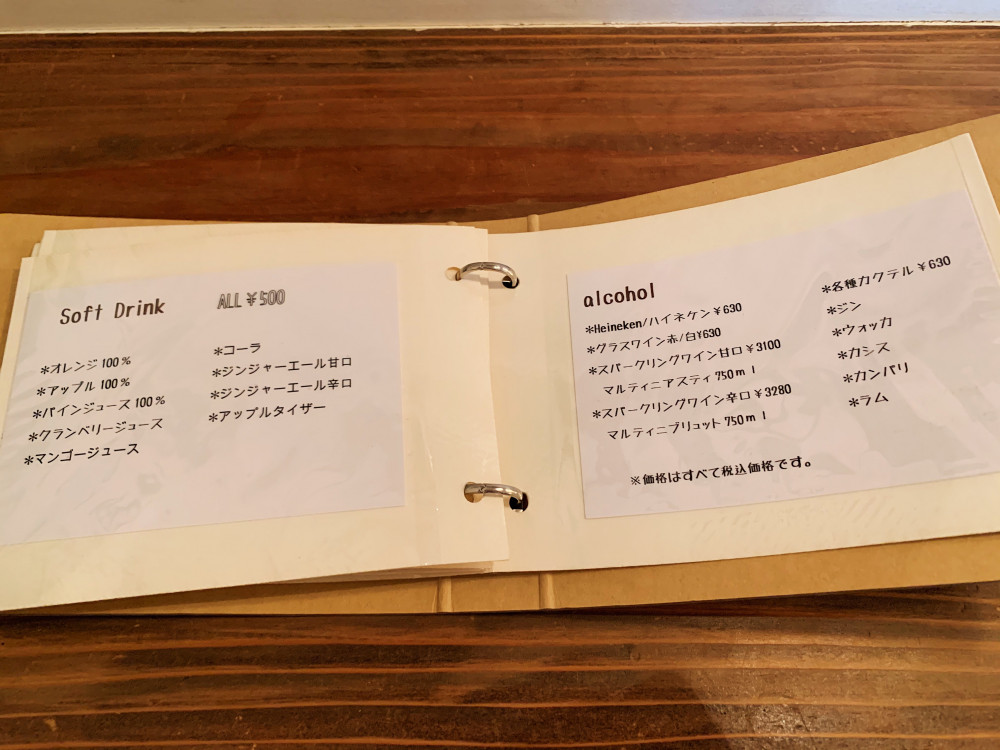 Soft Drink ALL ¥500
*オレンジ100%
*アップル100%
*パインジュース100%
*クランベリージュース
*マンゴージュース
*コーラ
*ジンジャーエール甘口
*ジンジャーエール辛口
*アップルタイザー
alcohol
*Heineken/ハイネケン¥630
*グラスワイン赤/白¥630
*スパークリングワイン甘口¥3100
マルティニアスティ750ml
*スパークリングワイン辛口¥3280
マルティニブリュット750ml
*各種カクテル¥630
*ジン
*ウォッカ
*カシス
*カンパリ
*ラム
※価格はすべて税込価格です。